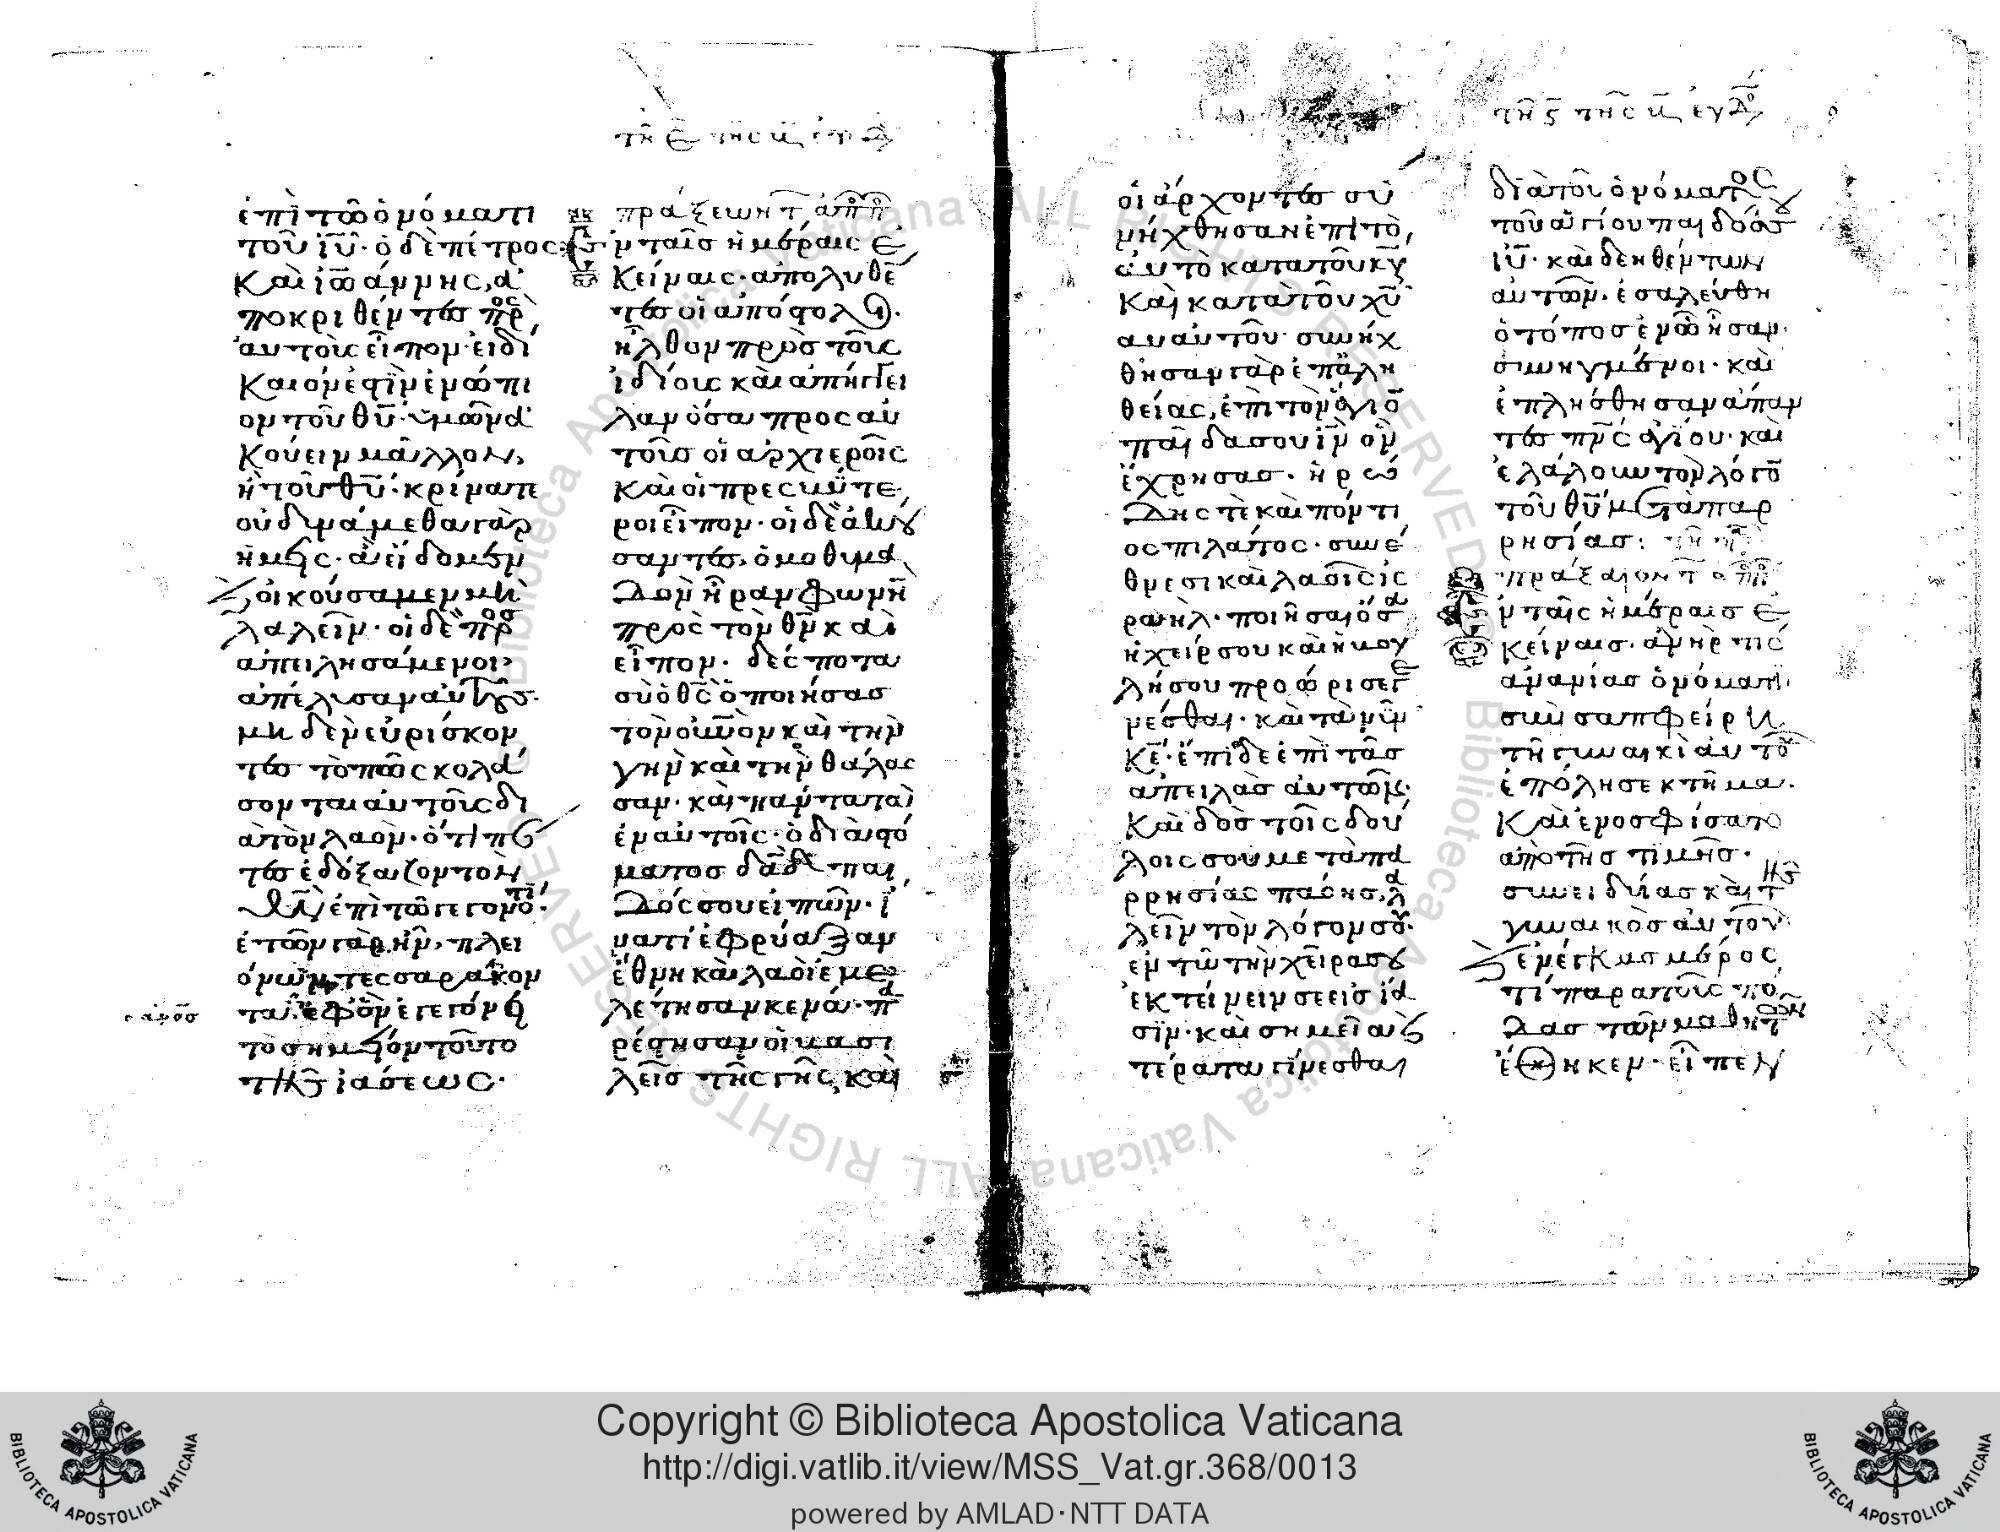 ἐπὶ τῶ ὀνόματι
τοῦ ἰῦ· ὁ δὲ πέτρος
καὶ ἰωάννης, ἀ
ποκριθέντες πρὸς
αὐτοὺς εἶπον· εἰ δί
καιόν ἐστιν ἐνώπι
ον τοῦ θῦ· ὑμῶν ἀ
κούειν μᾶλλον,
ἢ τοῦ θῦ· κρίνατε
οὐ δυνάμεθα γὰρ
ἡμεῖς· ἃ εἴδομεν
καὶ ἠκούσαμεν μὴ
λαλεῖν· οἱ δὲ προσ
απειλησάμενοι
ἀπέλυσαν αὐτούς·
μηδὲν εὑρίσκον
τες τὸ πῶς κολά
σονται αὐτοὺς δι
ὰ τὸν λαὸν· ὅτι πάν
τες ἐδόξαζον τὸν
θν ἐπὶ τῶ γεγονότι·
ἐτῶν γὰρ ἦν, πλει
όνων τεσσαράκον
τα· ἐφ ὃν ἐγεγόνει
τὸ σημεῖον τοῦτο
τῆς ἰάσεως·
πράξεων τ ἀπ
ἐν ταῖς ἡμέραις ἐ
κείναις· ἀπολυθέν
τες οἱ ἀπόστολοι·
ἦλθον πρὸς τοὺς
ἰδίους καὶ ἀπήγγει
λαν ὅσα προς αὐ
τοὺς οἱ ἀρχιερεῖς
καὶ οἱ πρεσβύτε
ροι εἶπον· οἱ δὲ ἀκού
σαντες, ὁμοθυμα
δὸν ἦραν φωνὴν
πρὸς τὸν θν καὶ
εἶπον· δέσποτα
σὺ ὁ θς ὁ ποιήσας
τὸν οὐνὸν καὶ τὴν
γῆν καὶ τὴν θάλασ
σαν· καὶ πάντα τὰ
ἐν αὐτοῖς· ὁ διὰ στό
ματος δαδ παι
δός σου εἰπῶν· ἵ
νατί ἐφρύαξαν
ἔθνη καὶ λαοὶ ἐμε
λέτησαν κενά· πα
ρέστησαν οἱ βασι
λεῖς τῆς γῆς, καὶ
οἱ ἄρχοντες συ
νήχθησαν ἐπιτὸ
αὐτο κατα τοῦ κυ
καὶ κατα τοῦ χυ
αὐτοῦ· συνήχ
θησαν γὰρ ἐπ ἀλη
θείας, ἐπὶ τὸν ἅγιον
παῖδα σου ιν ὃν
ἔχρησας· ἡρώ
δης τὲ καὶ πόντι
ος πιλάτος· σὺν ἔ
θνεσι καὶ λαοῖς ἰσ
ραηλ· ποιῆσαι ὅσα
ἡ χείρ σου καὶ ἡ βου
λή σου προώρισε γε
νέσθαι· καὶ τὰ νῦν
κε· ἔπιδε ἐπὶ τὰς
ἀπειλὰς αὐτῶν·
καὶ δὸς τοῖς δού
λοις σου μετὰ πα
ρρησίας πάσης, λα
λεῖν τὸν λόγον σου·
ἐν τῶ τὴν χεῖρα σου
ἐκτείνειν σε εἰς ἴα
σιν· καὶ σημεῖα καὶ
τέρατα γίνεσθαι
διὰ τοῦ ὀνόματος
τοῦ ἁγίου παιδός σου
ιυ· καὶ δεηθέντων
αὐτῶν· ἐσαλεύθη
ὁ τόπος ἐν ᾧ ἦσαν
συνηγμένοι· καὶ
ἐπλήσθησαν ἅπαν
τες πνς ἁγίου· καὶ
ἐλάλουν τὸν λόγον
τοῦ θῦ μετὰ παρ
ρησίας:
πράξεων τ ἀπ
ἐν ταῖς ἡμέραις ἐ
κείναις· ἀνὴρ τις
ἀνανίας ὀνόματι·
σὺν σαπφείρη
τῆ γυναικὶ αὐτοῦ
ἐπόλησε κτῆμα·
καὶ ἐνοσφίσατο
ἀπὸ τῆς τιμῆς·
συνειδυίας καὶ τῆς
γυναικὸς αὐτοῦ
καὶ ἐνέγκας μέρος
τι παρα τοὺς πό
δας τῶν μαθητῶν
ἔθηκεν· εἶπεν
Copyright © Biblioteca Apostolica Vaticana
http://digi.vatlib.it/view/MSS_Vat.gr.368/0013
powered by AMLAD·NTT DATA
BIBLIOTECA APOSTOLICA VATICANA
BIBLIOTECA APOSTOLICA VATICANA